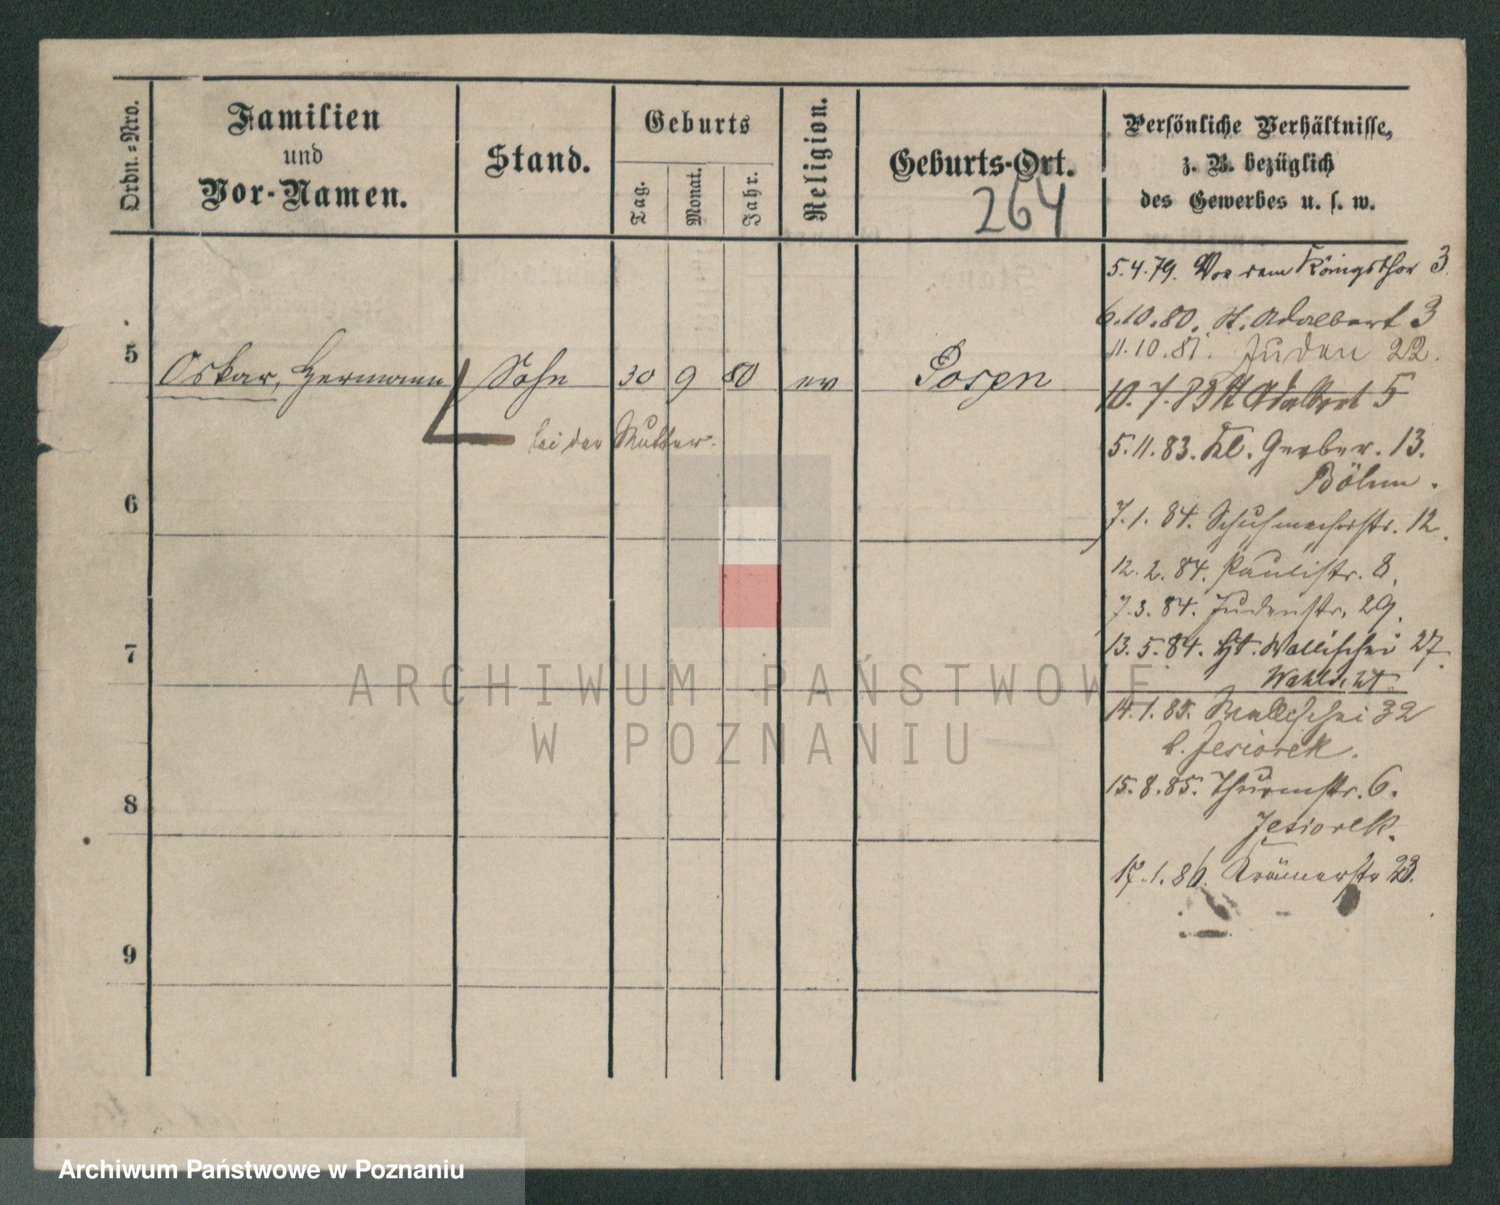 Ordn.=Nro.
Familien
und
Vor-Namen.
Stand.
Geburts
Tag.
Monat.
Jahr.
Religion.
Geburts-Ort.
264
Persönliche Verhältnisse,
z. B. bezüglich
des Gewerbes u. s. w.
5.4.79. Vor dem Königsthor 3.
6.10.80. St. Adalbert 3
11.10.81. Juden 22.
5 Oskar, Hermann Sohn 30 9 80 ev Posen
10.7.83 St Adalbert 5
bei der Mutter.
5.11.83. Kl. Gerber. 13.
Böhm.
6
7.1.84. Schuhmacherstr. 12.
12.2.84. Paulistr. 8.
7.3.84. Judenstr. 29.
7
13.5.84. Wallischei 27.
14.1.85. Wallischei 32
b. Jesiorek.
15.8.85. Thurmstr. 6.
Jesiorek.
8
17.1.86. Krämerstr 23.
9
ARCHIWUM PAŃSTWOWE
W POZNANIU
Archiwum Państwowe w Poznaniu